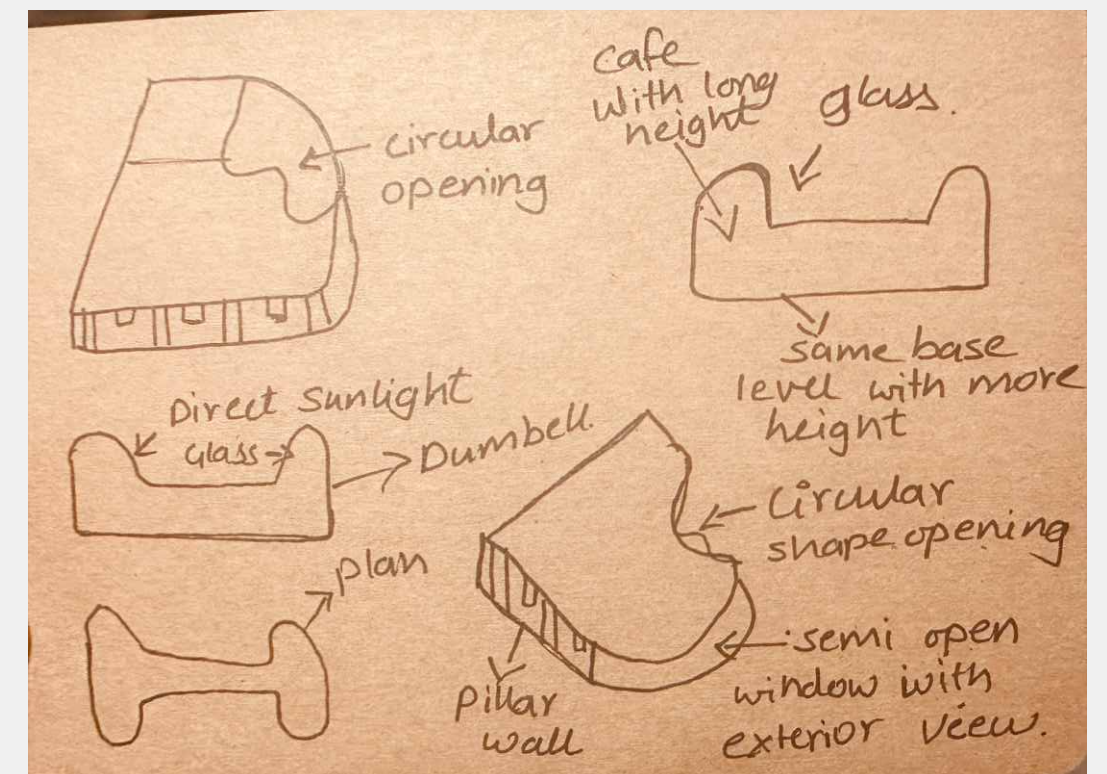 circular
opening
cafe
with long
height
glass.
same base
level with more
height
Direct Sunlight
Glass
Dumbell
plan
circular
shape opening
semi open
window with
exterior veew.
pillar
wall